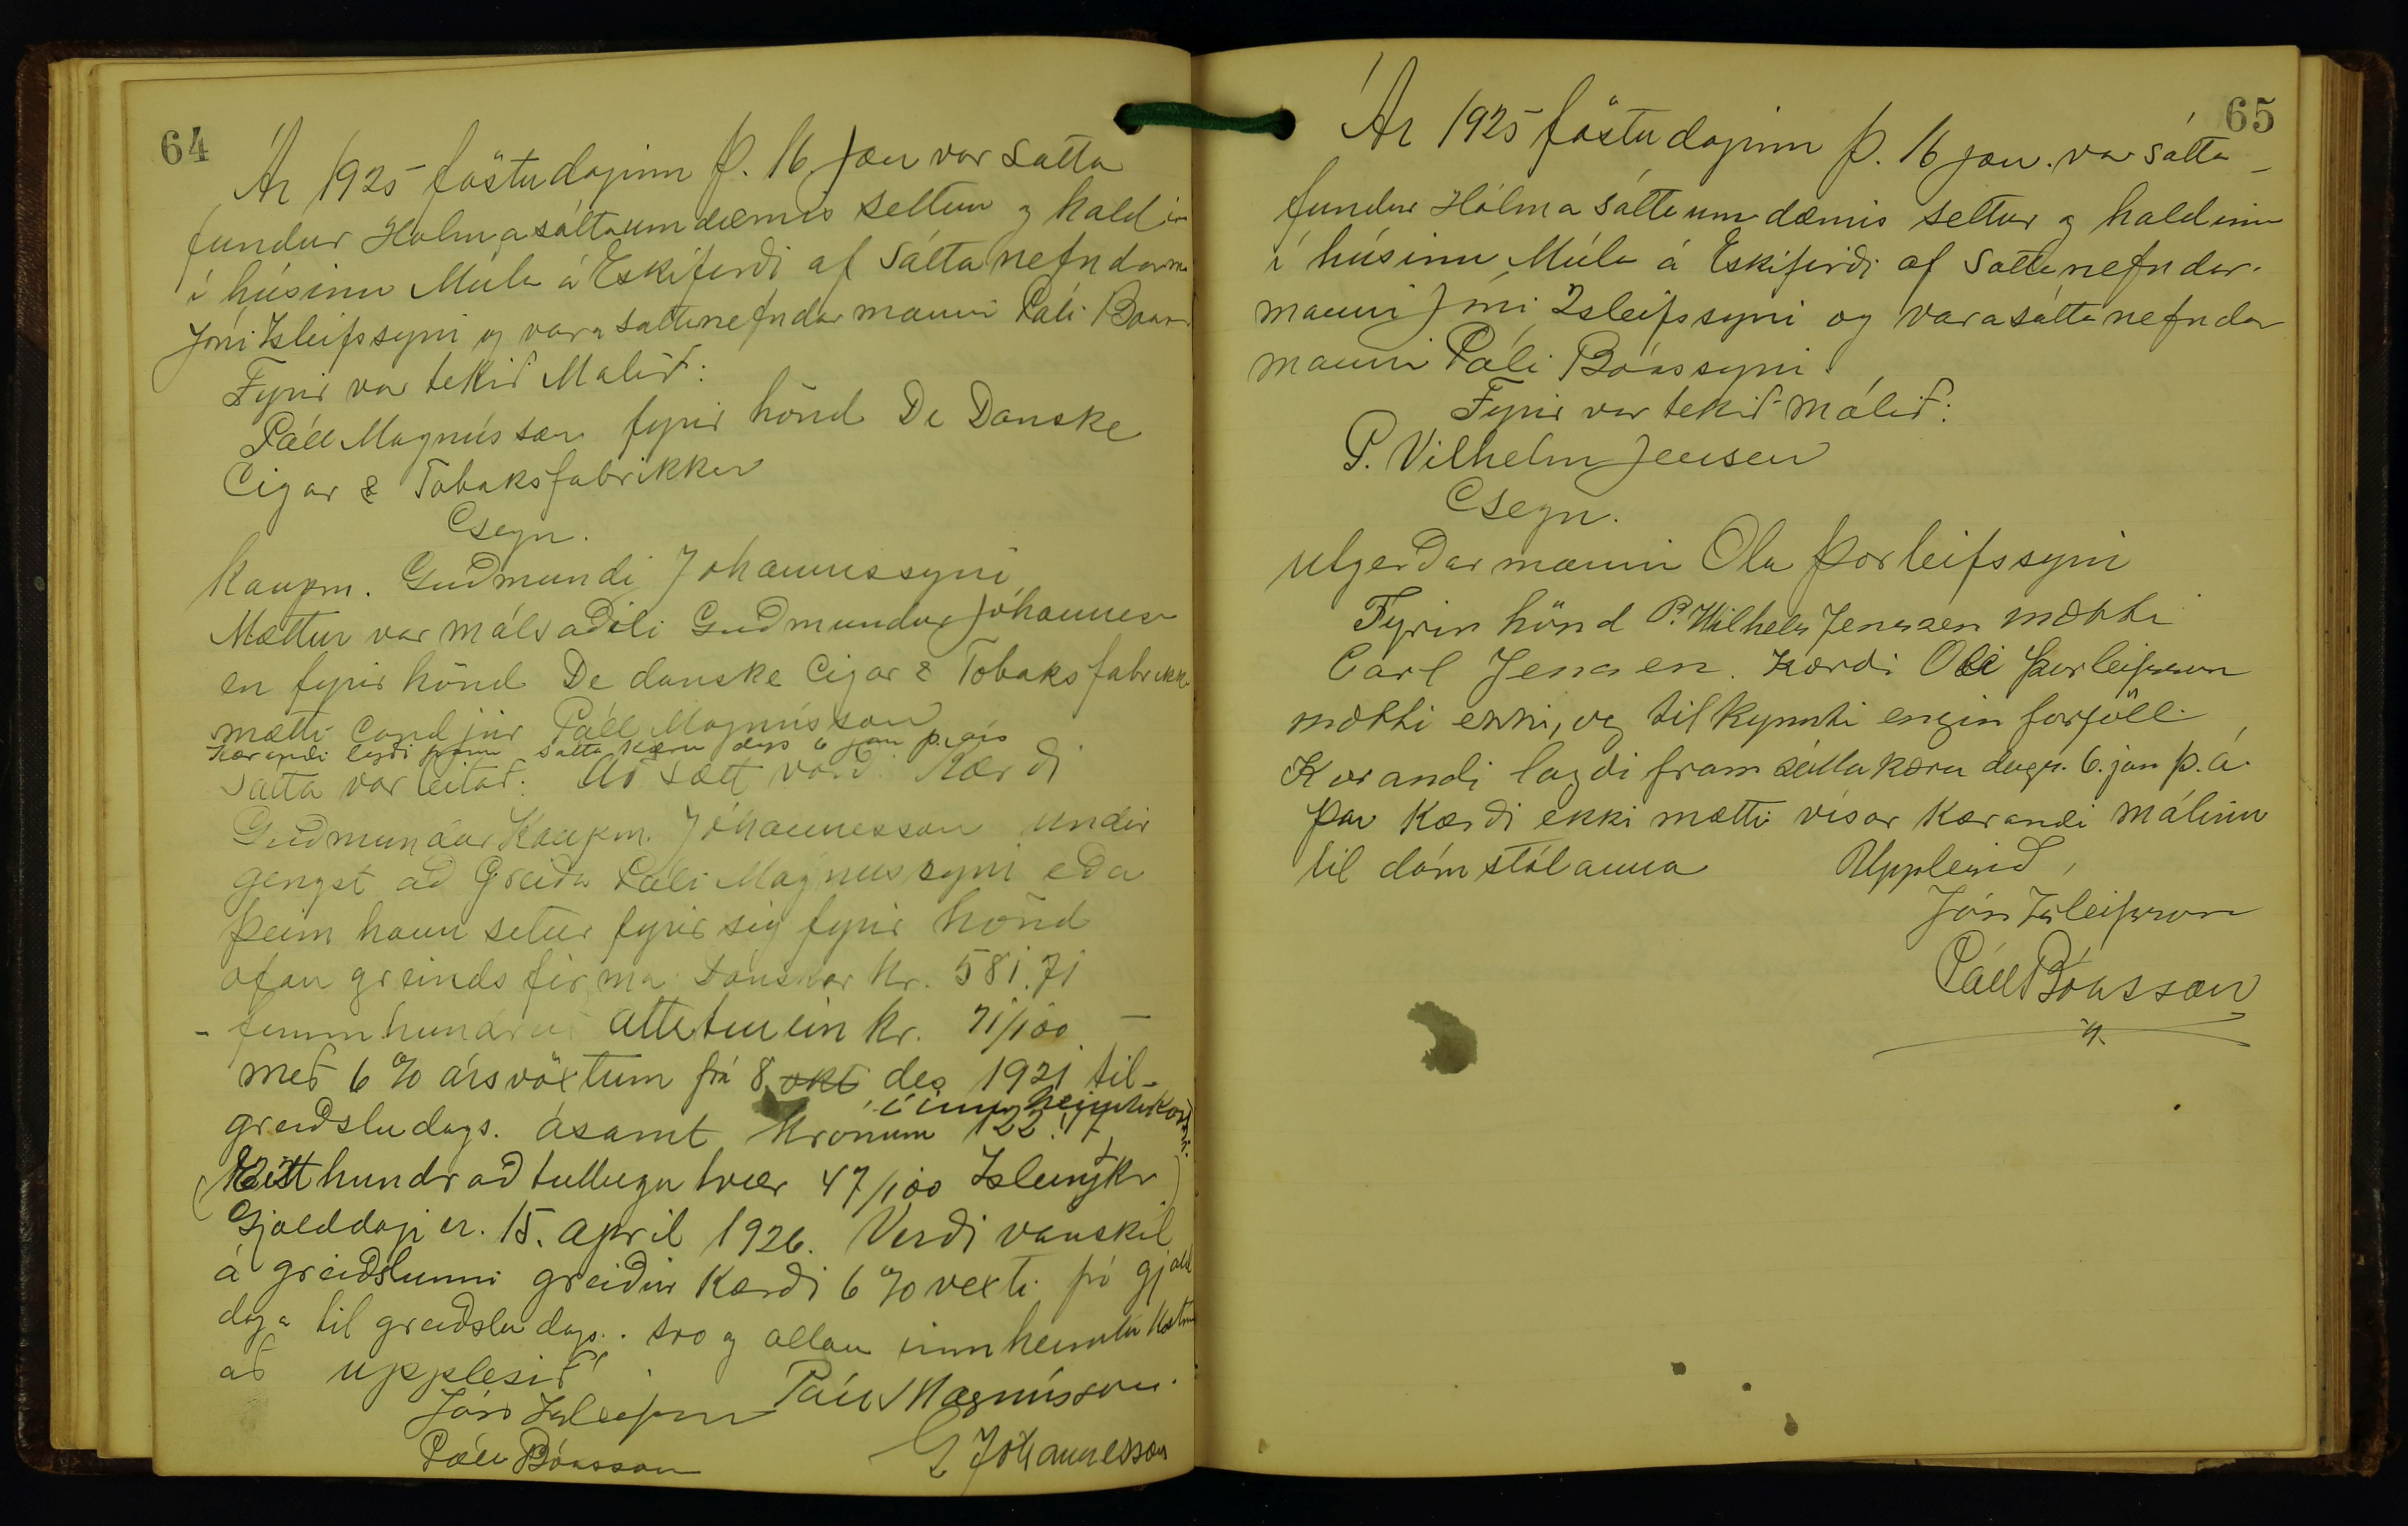 64
Ár 1925 föstudaginn þ. 16. jan var sátta
fundur Holmasáttaumdæmis settur og haldin
í húsinu Múla á Eskifirði af Sáttanefndarm
Jóni Isleifssyni og varasáttanefndarmanni Páli Boas
Fyrir var tekið Malið:
Páll Magnússon fyrir hönd De Danske
Cigar & Tobaksfabrikker
Gegn.
Kaupm. Guðmundi Jóhannessyni
Mættur var málsaðili Guðmundur Jóhanness
en fyrir hönd De danske Cigar & Tobaksfabrikk
mætti cand jur Páll Magnússon
Kærandi lagði fram sáttakæru dags 6 jan þ. árs
Sátta var leitað: Að sætt varð: Kærði
Guðmundur Kaupm. Jóhannesson undir
gengst að Greiða Páli Magnússyni eða
þeim hann setur fyrir sig fyrir hönd
ofan greinds firma Danskar kr. 581.71
- fimmhundruð áttatíu ein kr. 71/100 -
með 6% ársvöxtum frá 8. okt des 1921 til
greiðsludags. ásamt Krónum 122.47
í innheimtukostn.
(Eitt hundrað tuttugu tvær 47/100 Islenskr)
Gjalddagi er. 15. april 1926. Verði vanskil
á greiðslunni greiðir kærði 6% vexti frá gjald
daga til greiðsludags. svo og allan innheimtu kostn
að upplesið
Jón Isleifsson Páll Magnússon.
Páll Bóasson G Jóhannesson
65
Ár 1925 föstudaginn þ. 16 jan. var sátta-
fundur Hólma sáttaumdæmis settur og haldinn
í húsinu Múla á Eskifirði af Sáttanefndar-
manni Jóni Isleifssyni og varasáttanefndar
manni Páli Bóassyni.
Fyrir var tekið málið:
P. Vilhelm Jensen
Gegn.
utgerðarmanni Ola Þorleifssyni
Fyrir hönd P. Wilhelm Jensen mætti
Carl Jensen. Kærði Oli Þorleifsson
mætti ekki, og tilkynnti engin forföll.
Kærandi lagði fram sáttakæru dags. 6. jan þ. á.
Þar Kærði ekki mætti vísar Kærandi málinu
til dómstólanna Upplesið,
Jón Isleifsson
Páll Bóasson